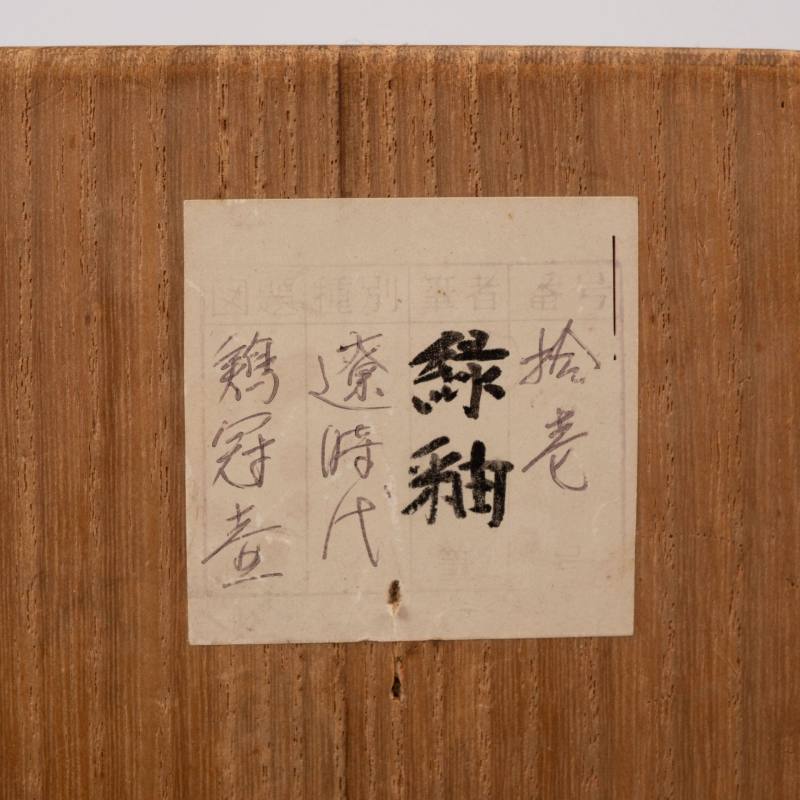 番号
拾壱
筆者
緑釉
種別
遼時代
図題
鶏冠壺